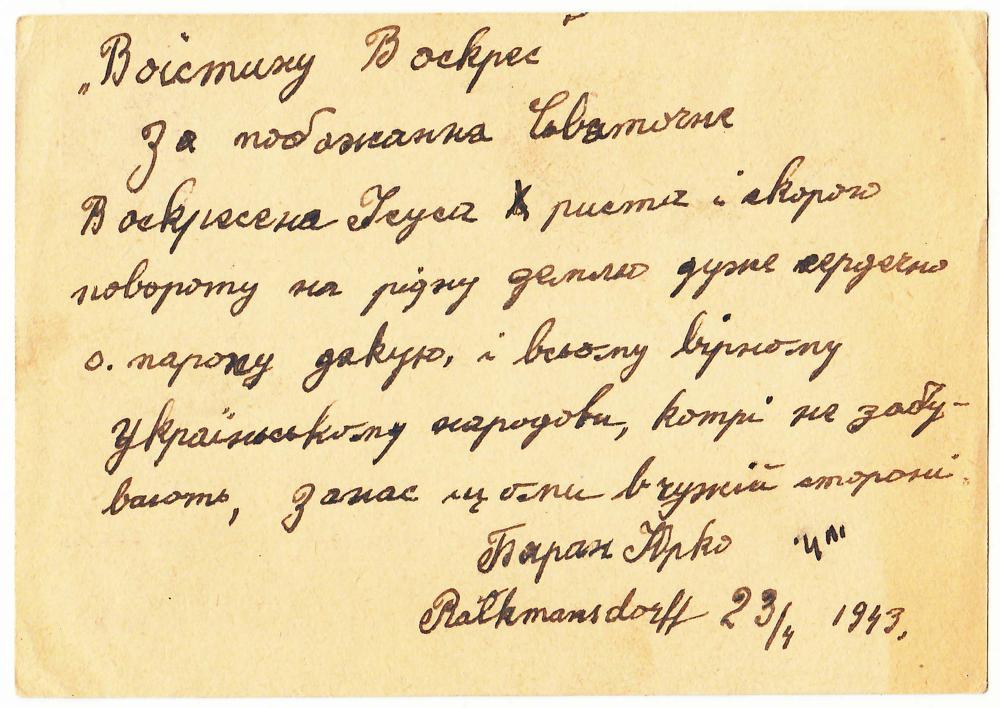 „Воістину Воскрес"
За побожанна Святочне
Воскресена Ісуса Христа і скорого
повороту на рідну землю дуже сердечно
о. пароху дакую, і всьому вірному
Українському народови, котрі не забу-
вають, занас щ оми в чужій стороні.
Баран Юрко
Ratkmansdorff 23/4 1943.